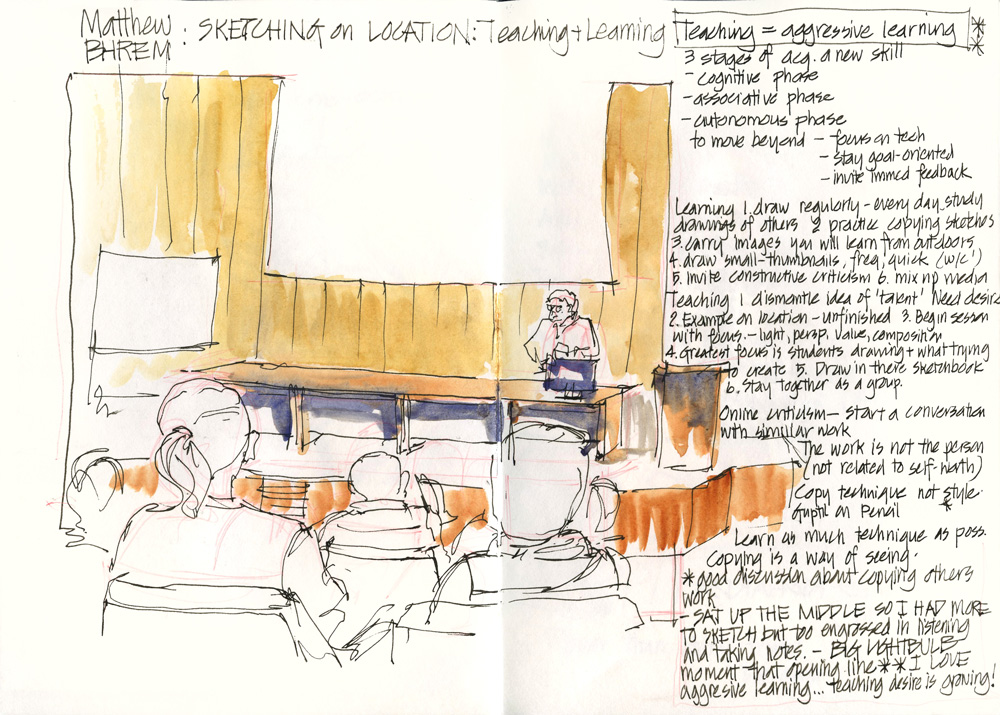 Matthew BHREM : SKETCHING on LOCATION: Teaching + Learning
Teaching = aggressive learning **
3 stages of acq. a new skill
- cognitive phase
- associative phase
- autonomous phase
to move beyond - focus on tech
- stay goal-oriented
- invite immed feedback
Learning 1. draw regularly - every day. study
drawings of others 2 practice copying sketches
3. carry images you will learn from outdoors
4. draw small-thumbnails, freq, quick (w/c)
5. Invite constructive criticism 6. mix up media
Teaching 1 dismantle idea of 'talent' Need desire
2. Example on location - unfinished 3. Begin session
with focus. - light, persp. value, composition
4. Greatest focus is students drawing + what trying
to create 5. Draw in there sketchbook
6. Stay together as a group.
Online criticism - Start a conversation
with similar work
The work is not the person
(not related to self-worth)
Copy technique not style.
*
Guptil on Pencil
Learn as much technique as poss.
Copying is a way of seeing.
* good discussion about copying others
work
- SAT UP THE MIDDLE SO I HAD MORE
TO SKETCH but too engrossed in listening
and taking notes. - BIG LIGHTBULB
moment that opening line ** I LOVE
aggresive learning... teaching desire is growing!